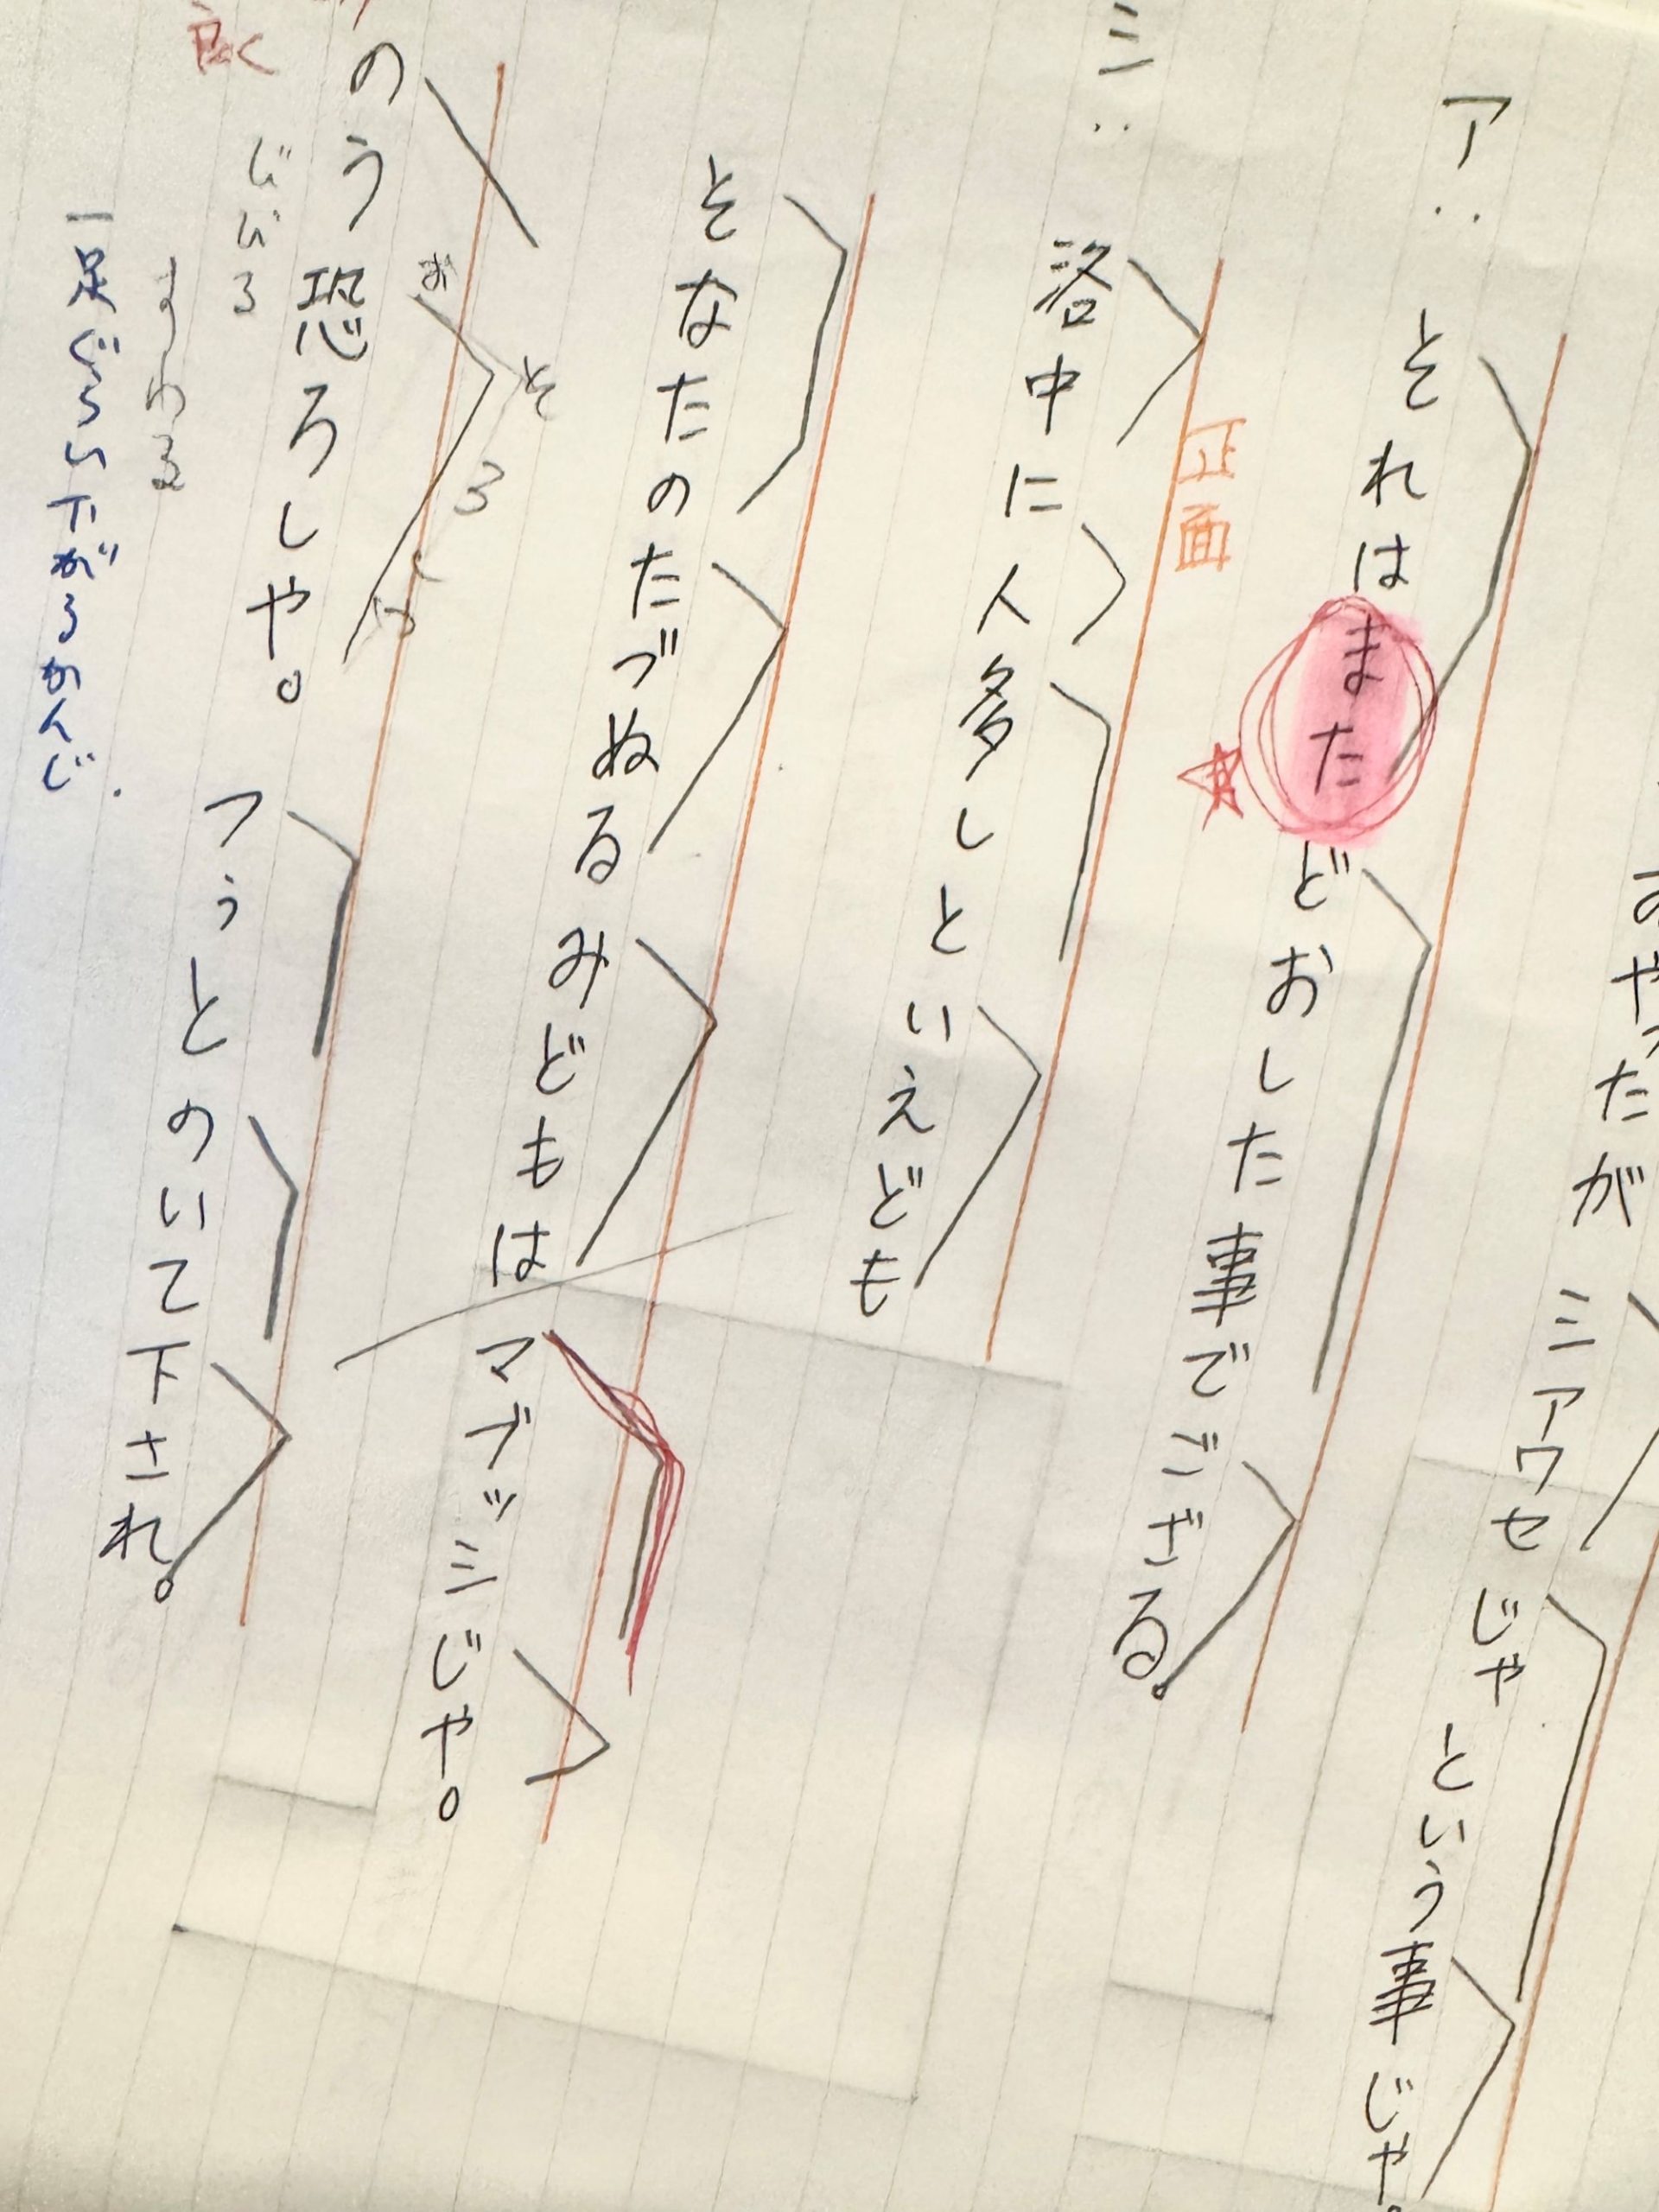 おやったが シアワセじゃという事じゃ。
ア：
それはまたどおした事でござる。
正面
シ：
洛中に人多しといえども
そなたのたづぬるみどもはマブッシじゃ。
のう恐ろしや。つぅとのいて下され。
おそろし
良く
じじろ
一足ぐらい下がるかんじ.